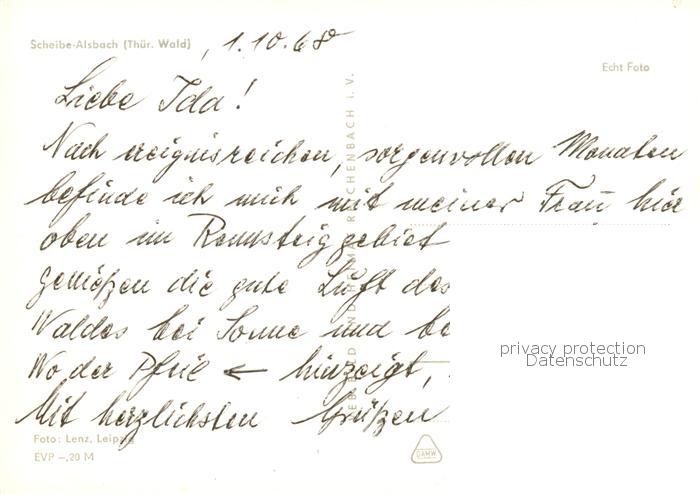 Scheibe-Alsbach (Thür. Wald) , 1.10.68
Echt Foto
Liebe Ida!
Nach ereignisreichen, sorgenvollen Monaten
befinde ich mich mit meiner Frau hier
oben im Rennsteiggebiet
genießen die gute Luft des
Waldes bei Sonne und be
Wo der Pfeil ← hinzeigt,
Mit herzlichsten Grüßen
REICHENBACH I. V.
privacy protection
Datenschutz
Foto: Lenz, Leipzig
EVP -,20 M
DAMW